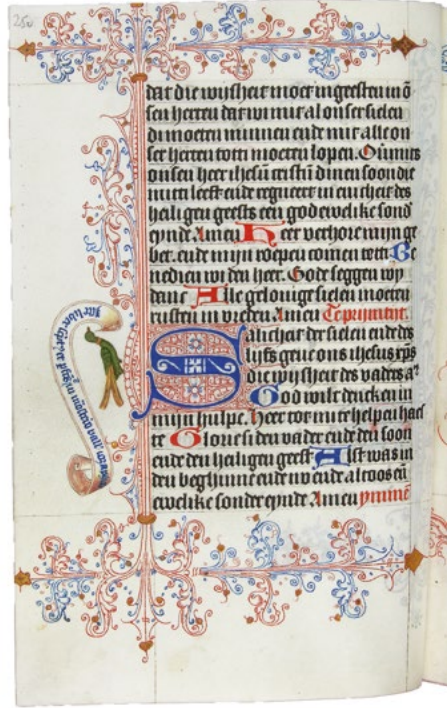 250
dat die wijsheit moet in geesten in o̅
sen herten dat wi mit al onser sielen
di moeten minnen ende mit alle on
ser herten tot ti moeten lopen. Oůmits
onsen heer ih̅esu̅ cristu̅ dinen soon die
mit ti leeft ende regneert in eenicheit des
heiligen geests een god ewelike sond̛
eynde Amen Heer verhore mijn ge
bet. ende mijn roepen comen tot ti Be
nedien wi den heer. Gode seggen wy
danc Alle gelovige sielen moeten
rusten in vreden Amen Te prijmtijt.
Salicheit der sielen ende des
lijfs geve ons ihesus xp̅s
die wijsheit des vaders a̅
God wilt dencken in
mijn hulpe. Heer tot mi te helpen haes
te Glorie si den vader ende den soon
ende den heiligen geest Alst was in
den beghinne ende nv ende altoos en̅
ewelike sonder eynde Amen ymme̅